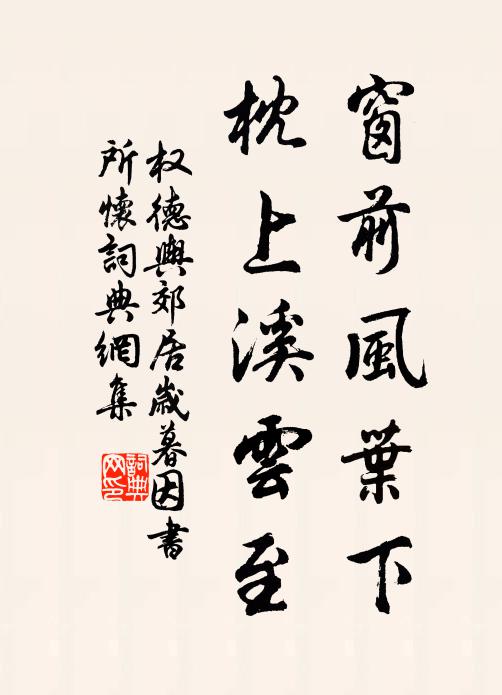 窗前風葉下
枕上溪雲至
权德輿郊居歲暮因書
所懷詞典網集
詞典
网印